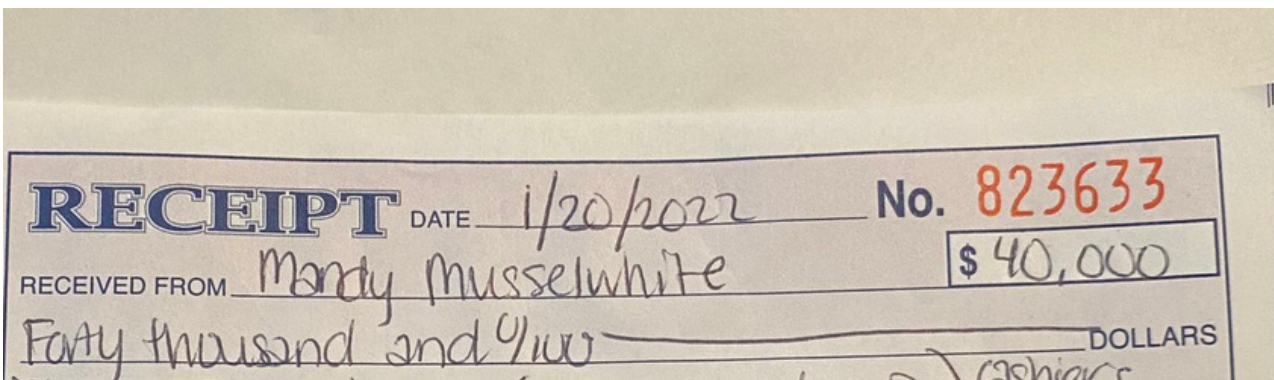 RECEIPT DATE 1/20/2022 No. 823633
RECEIVED FROM Mandy Musselwhite $ 40,000
Forty thousand and 0/100 DOLLARS
cashiers